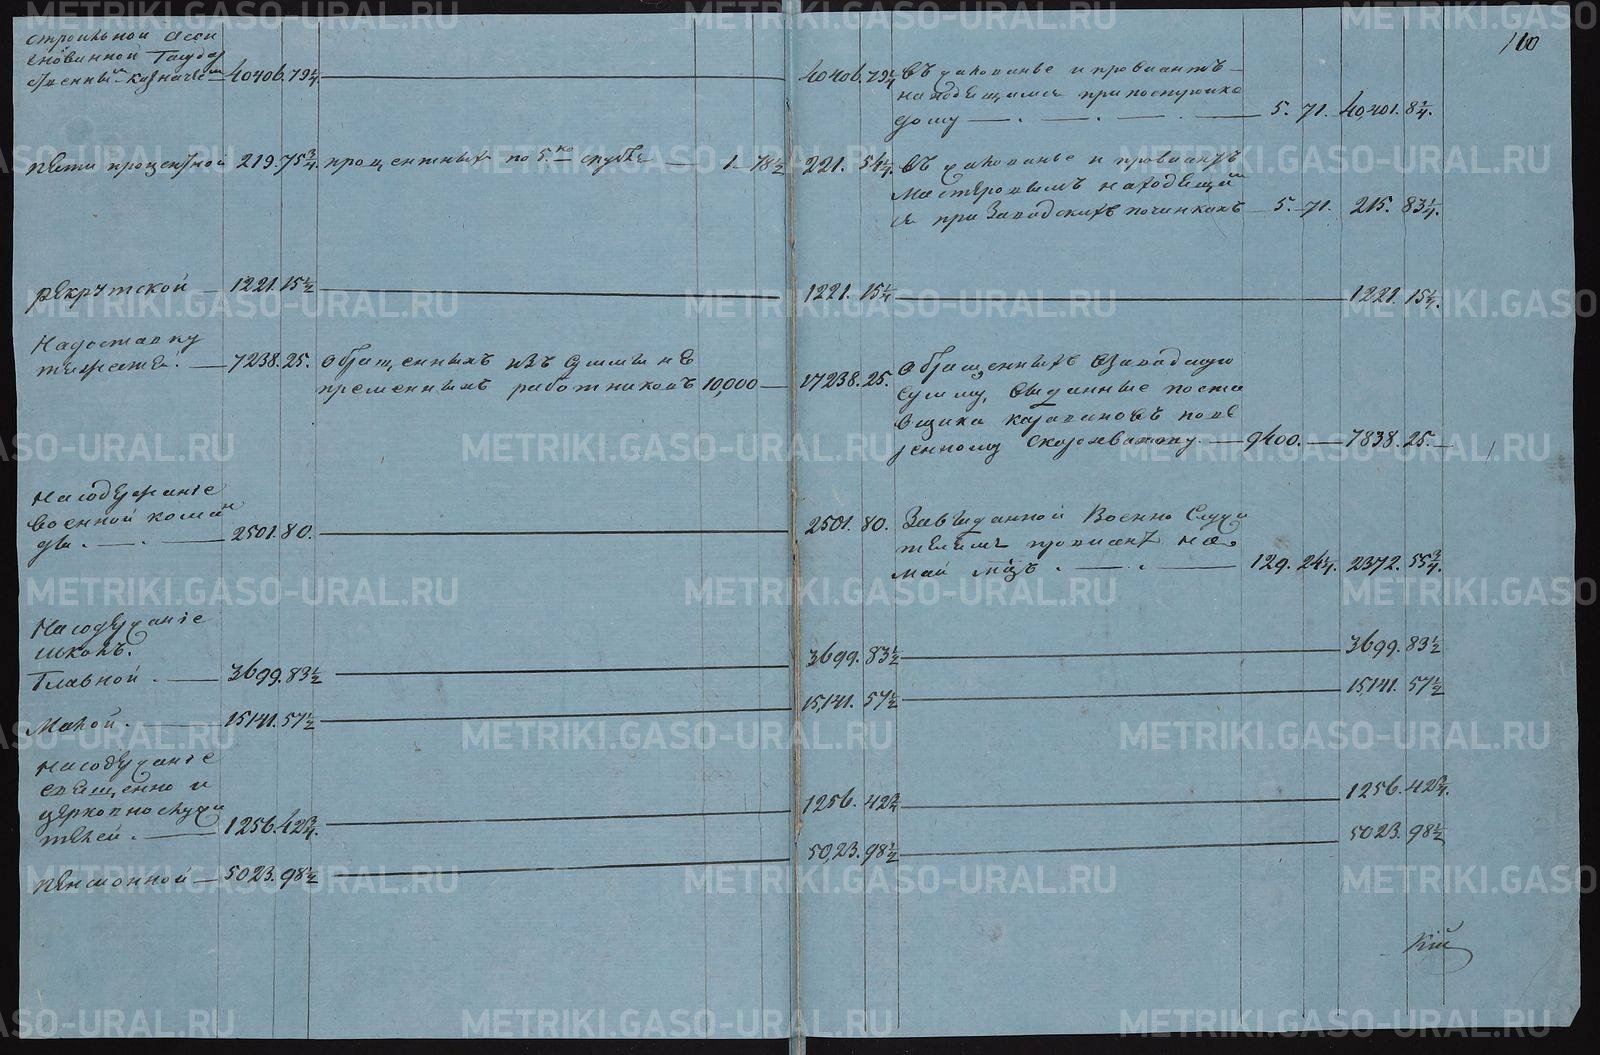 110
строильной асси
гнованной Государ
ственнымъ казначе 40406.79¼ 40406.79¼ въ жалованье и провіантъ
находещимся при постройке
дому 5. 71. 40,401. 8¼.
пяти процентной 219.75¾ процентныхъ по 5.ко 1 78½ 221. 54¼. въ жалованье и провіантъ
мастеровымъ находещим
ся при Заводскихъ починкахъ 5. 71. 215. 83¼.
рекрутской 1221.15½ 1221. 15¼ 1221. 15¼.
На доставку
тяжестей. 7238.25. обращенныхъ изъ суммы не
пременнымъ работникамъ 10,000 17238.25. обращенныхъ взаводскую
сумму, выданные поста
вщика караванов пове
ренному 9400. 7838.25.
На содержаніе
военной коман
ды. 2501.80. 2501.80. Завыданной Военно Служи
телямъ провиантъ на
май м҃цъ. 129. 24¼. 2372. 55¾.
На содержаніе
школъ.
Главной. 3699.83½ 3699.83½ 3699.83½
Малой. 15141.57½ 15,141.57½ 15,141.57½
На содержаніе
священно и
церковнослужи
телей. 1256.42¾. 1256.42¾ 1256.42¾.
пенсионной 5023.98½ 50,23.98½ 5023.98½
METRIKI.GASO-URAL.RU